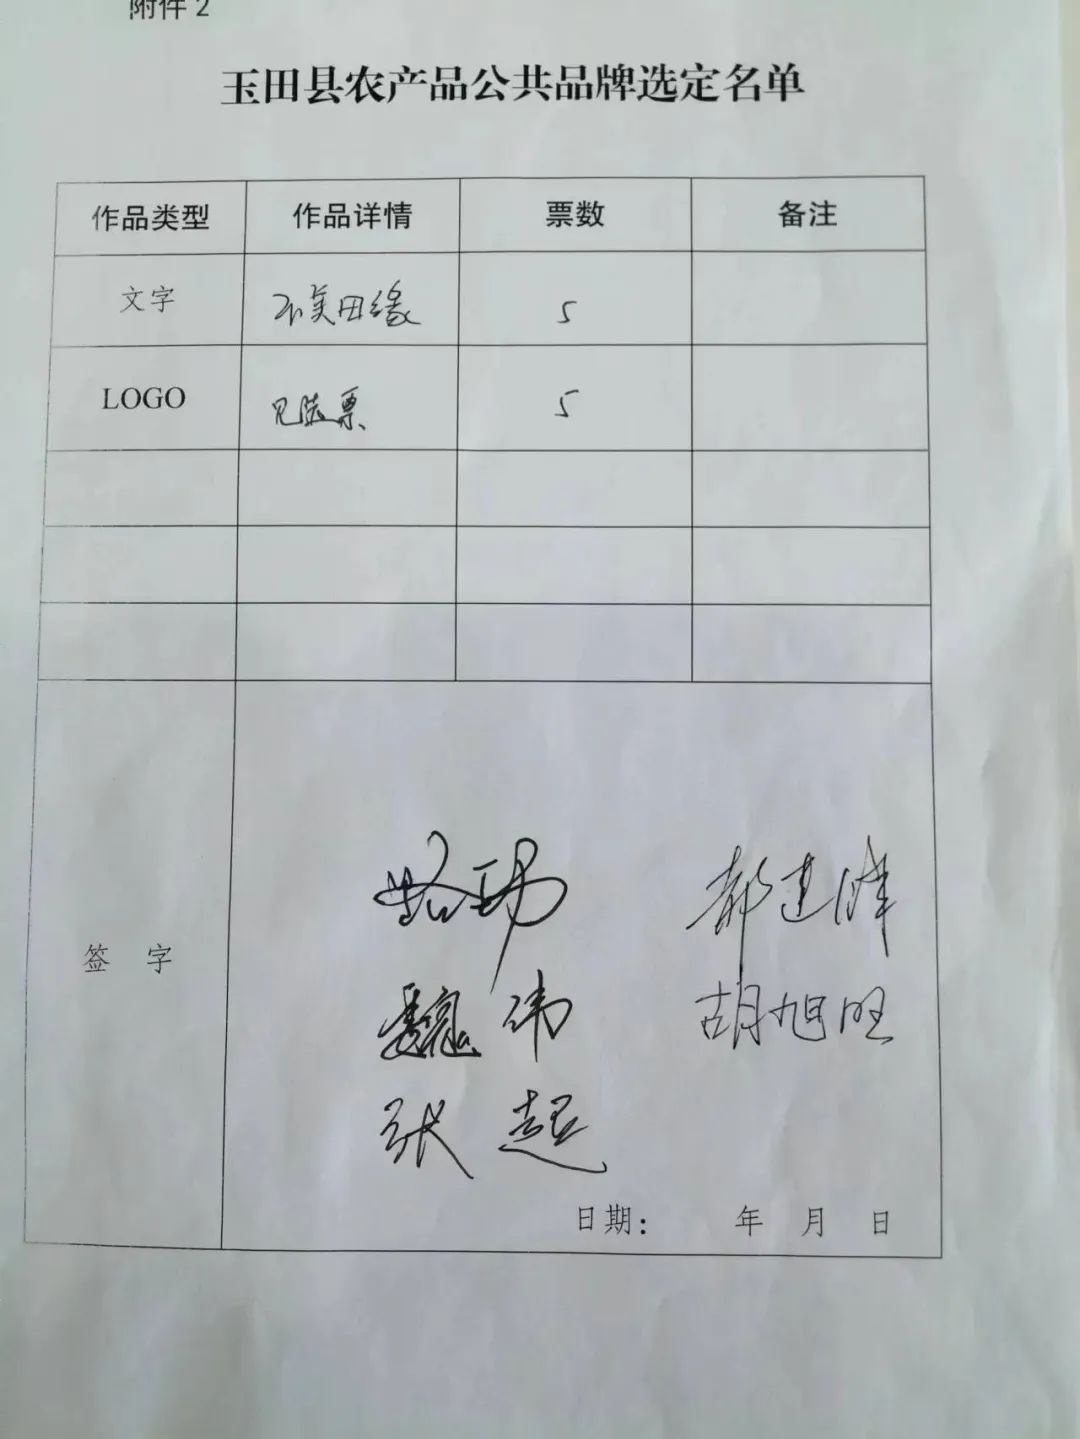 附件2
玉田县农产品公共品牌选定名单
作品类型 作品详情 票数 备注
文字 美田缘 5
LOGO 见选票 5
签 字
郝建峰
魏伟 胡旭旺
张起
日期： 年 月 日